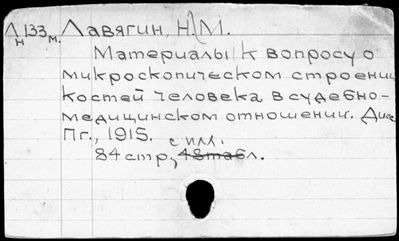 Л н 133 м. Лавягин, Н. М.
Материалы к вопросу о
микроскопическом строении
костей человека в судебно-
медицинском отношении. Дисс.
Пг., 1915.
с илл.
84 стр., 48 табл.